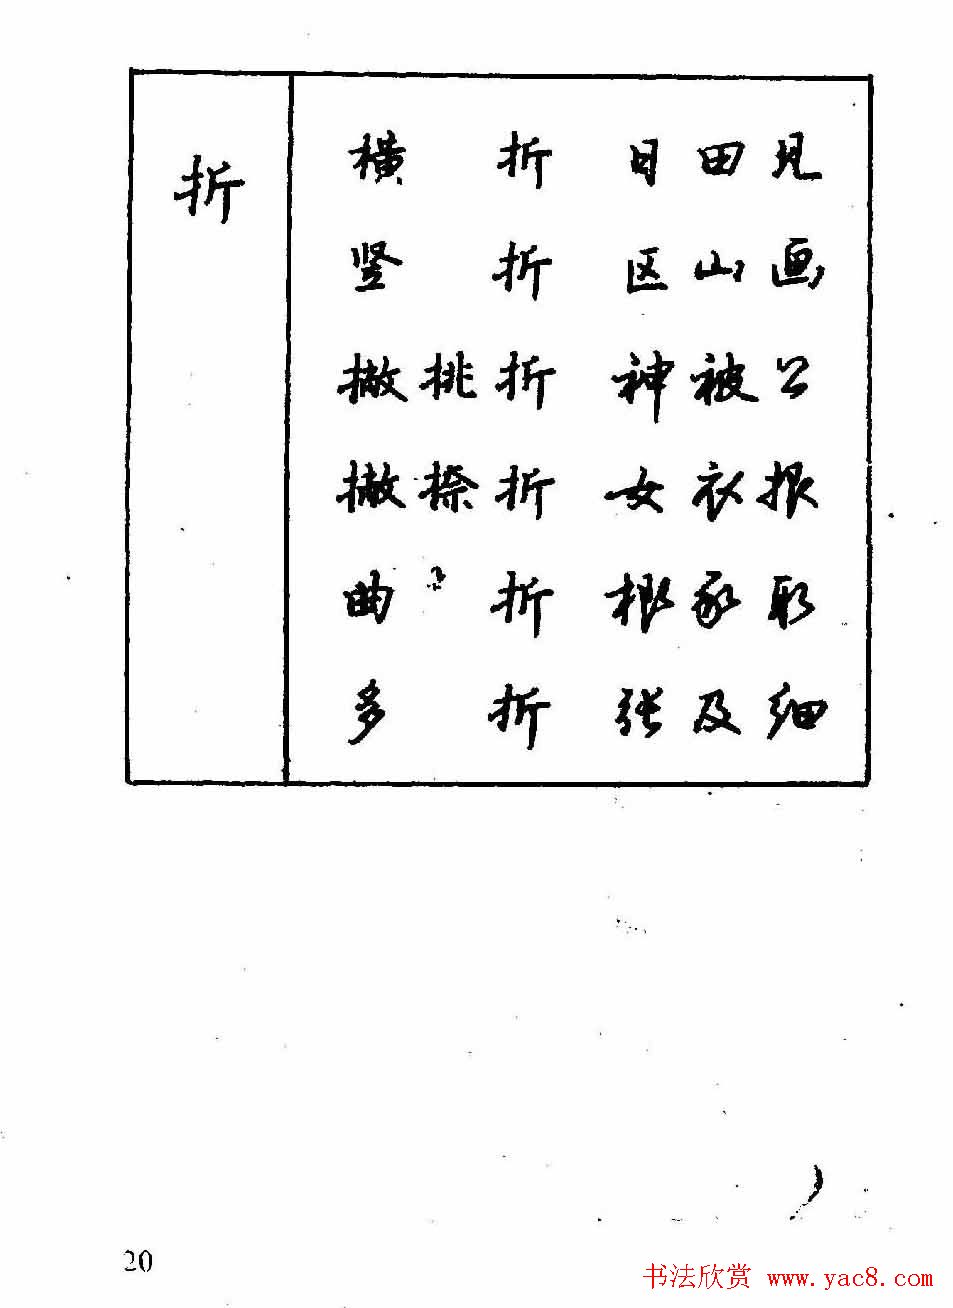 折
横折 日田见
竖折 区山画
撇挑折 神被公
撇捺折 女衣报
曲折
多折 张及细
20
书法欣赏 www.yac8.com